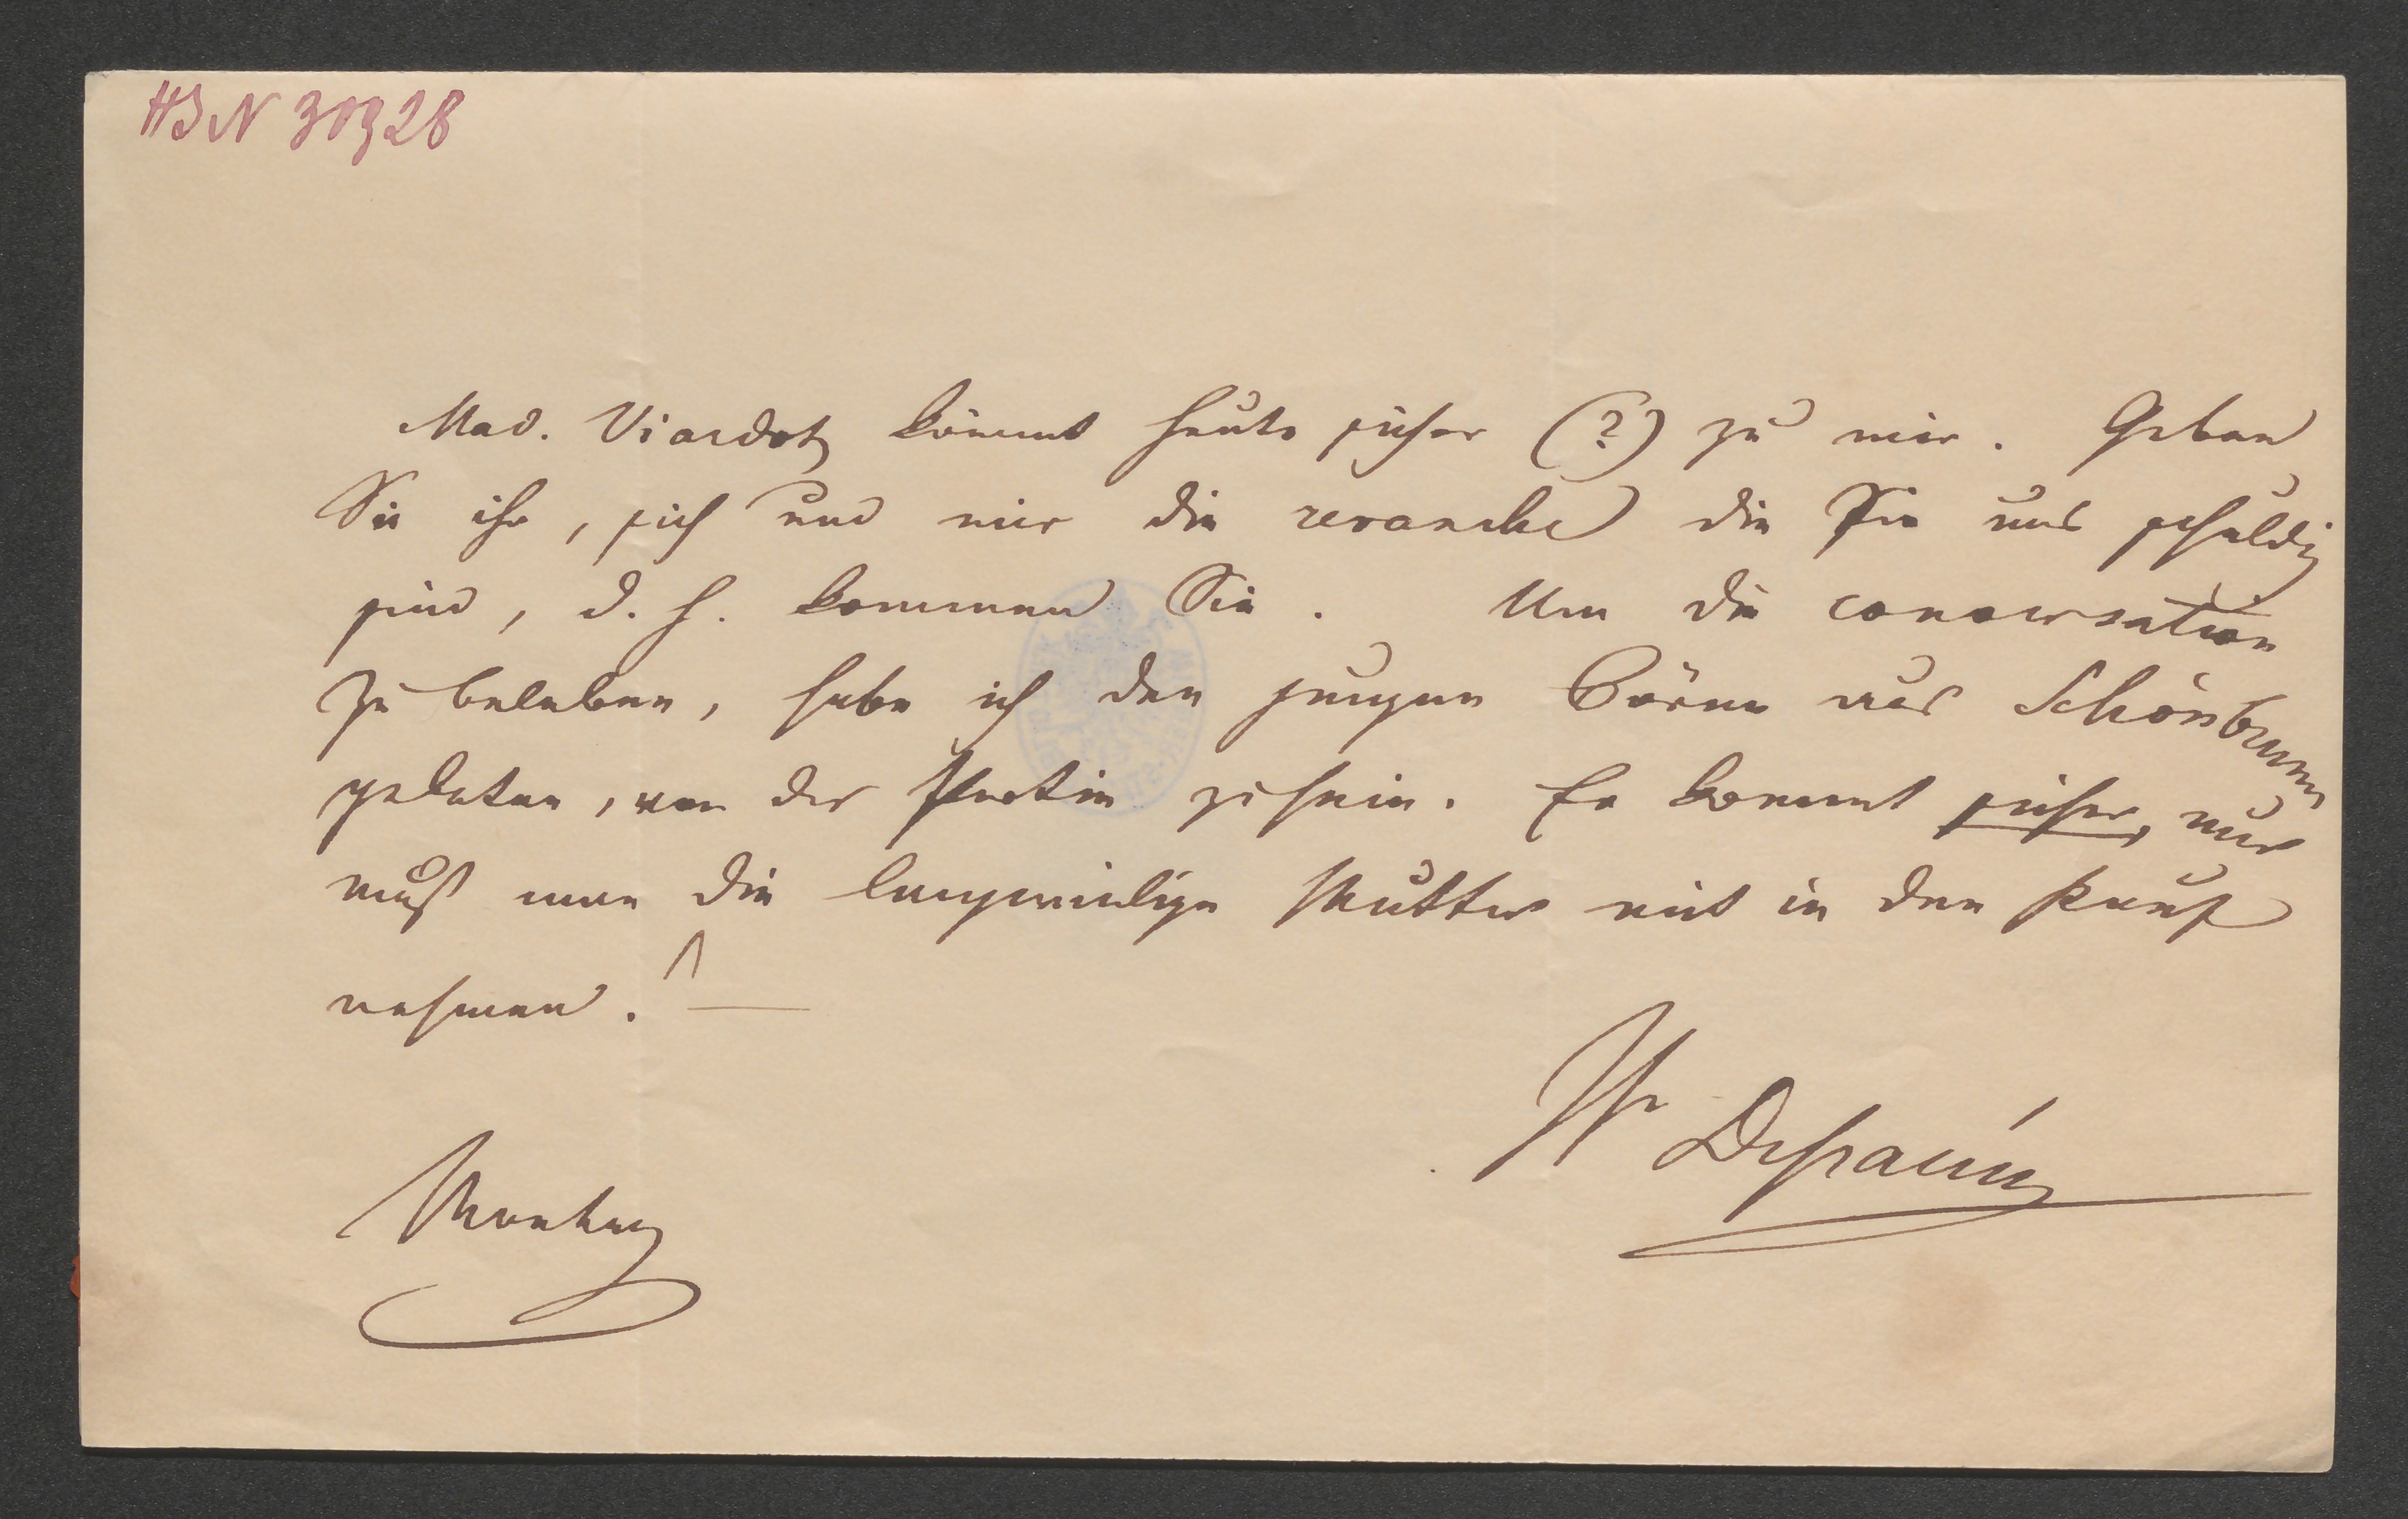 HIN 30928
Mad. Viardot kömmt heute sicher (?) zu mir. Geben
Sie ihr, sich und mir die revanche die Sie uns schuldig
sind, d. h. kommen Sie. Um die conversation
zu beleben, habe ich den jungen Bären aus Schönbrunn
gebeten, von der Partie zu sein. Er kommt sicher, nur
muß man die langweilige Mutter mit in den Kauf
nehmen. —
Dessauer
Montag